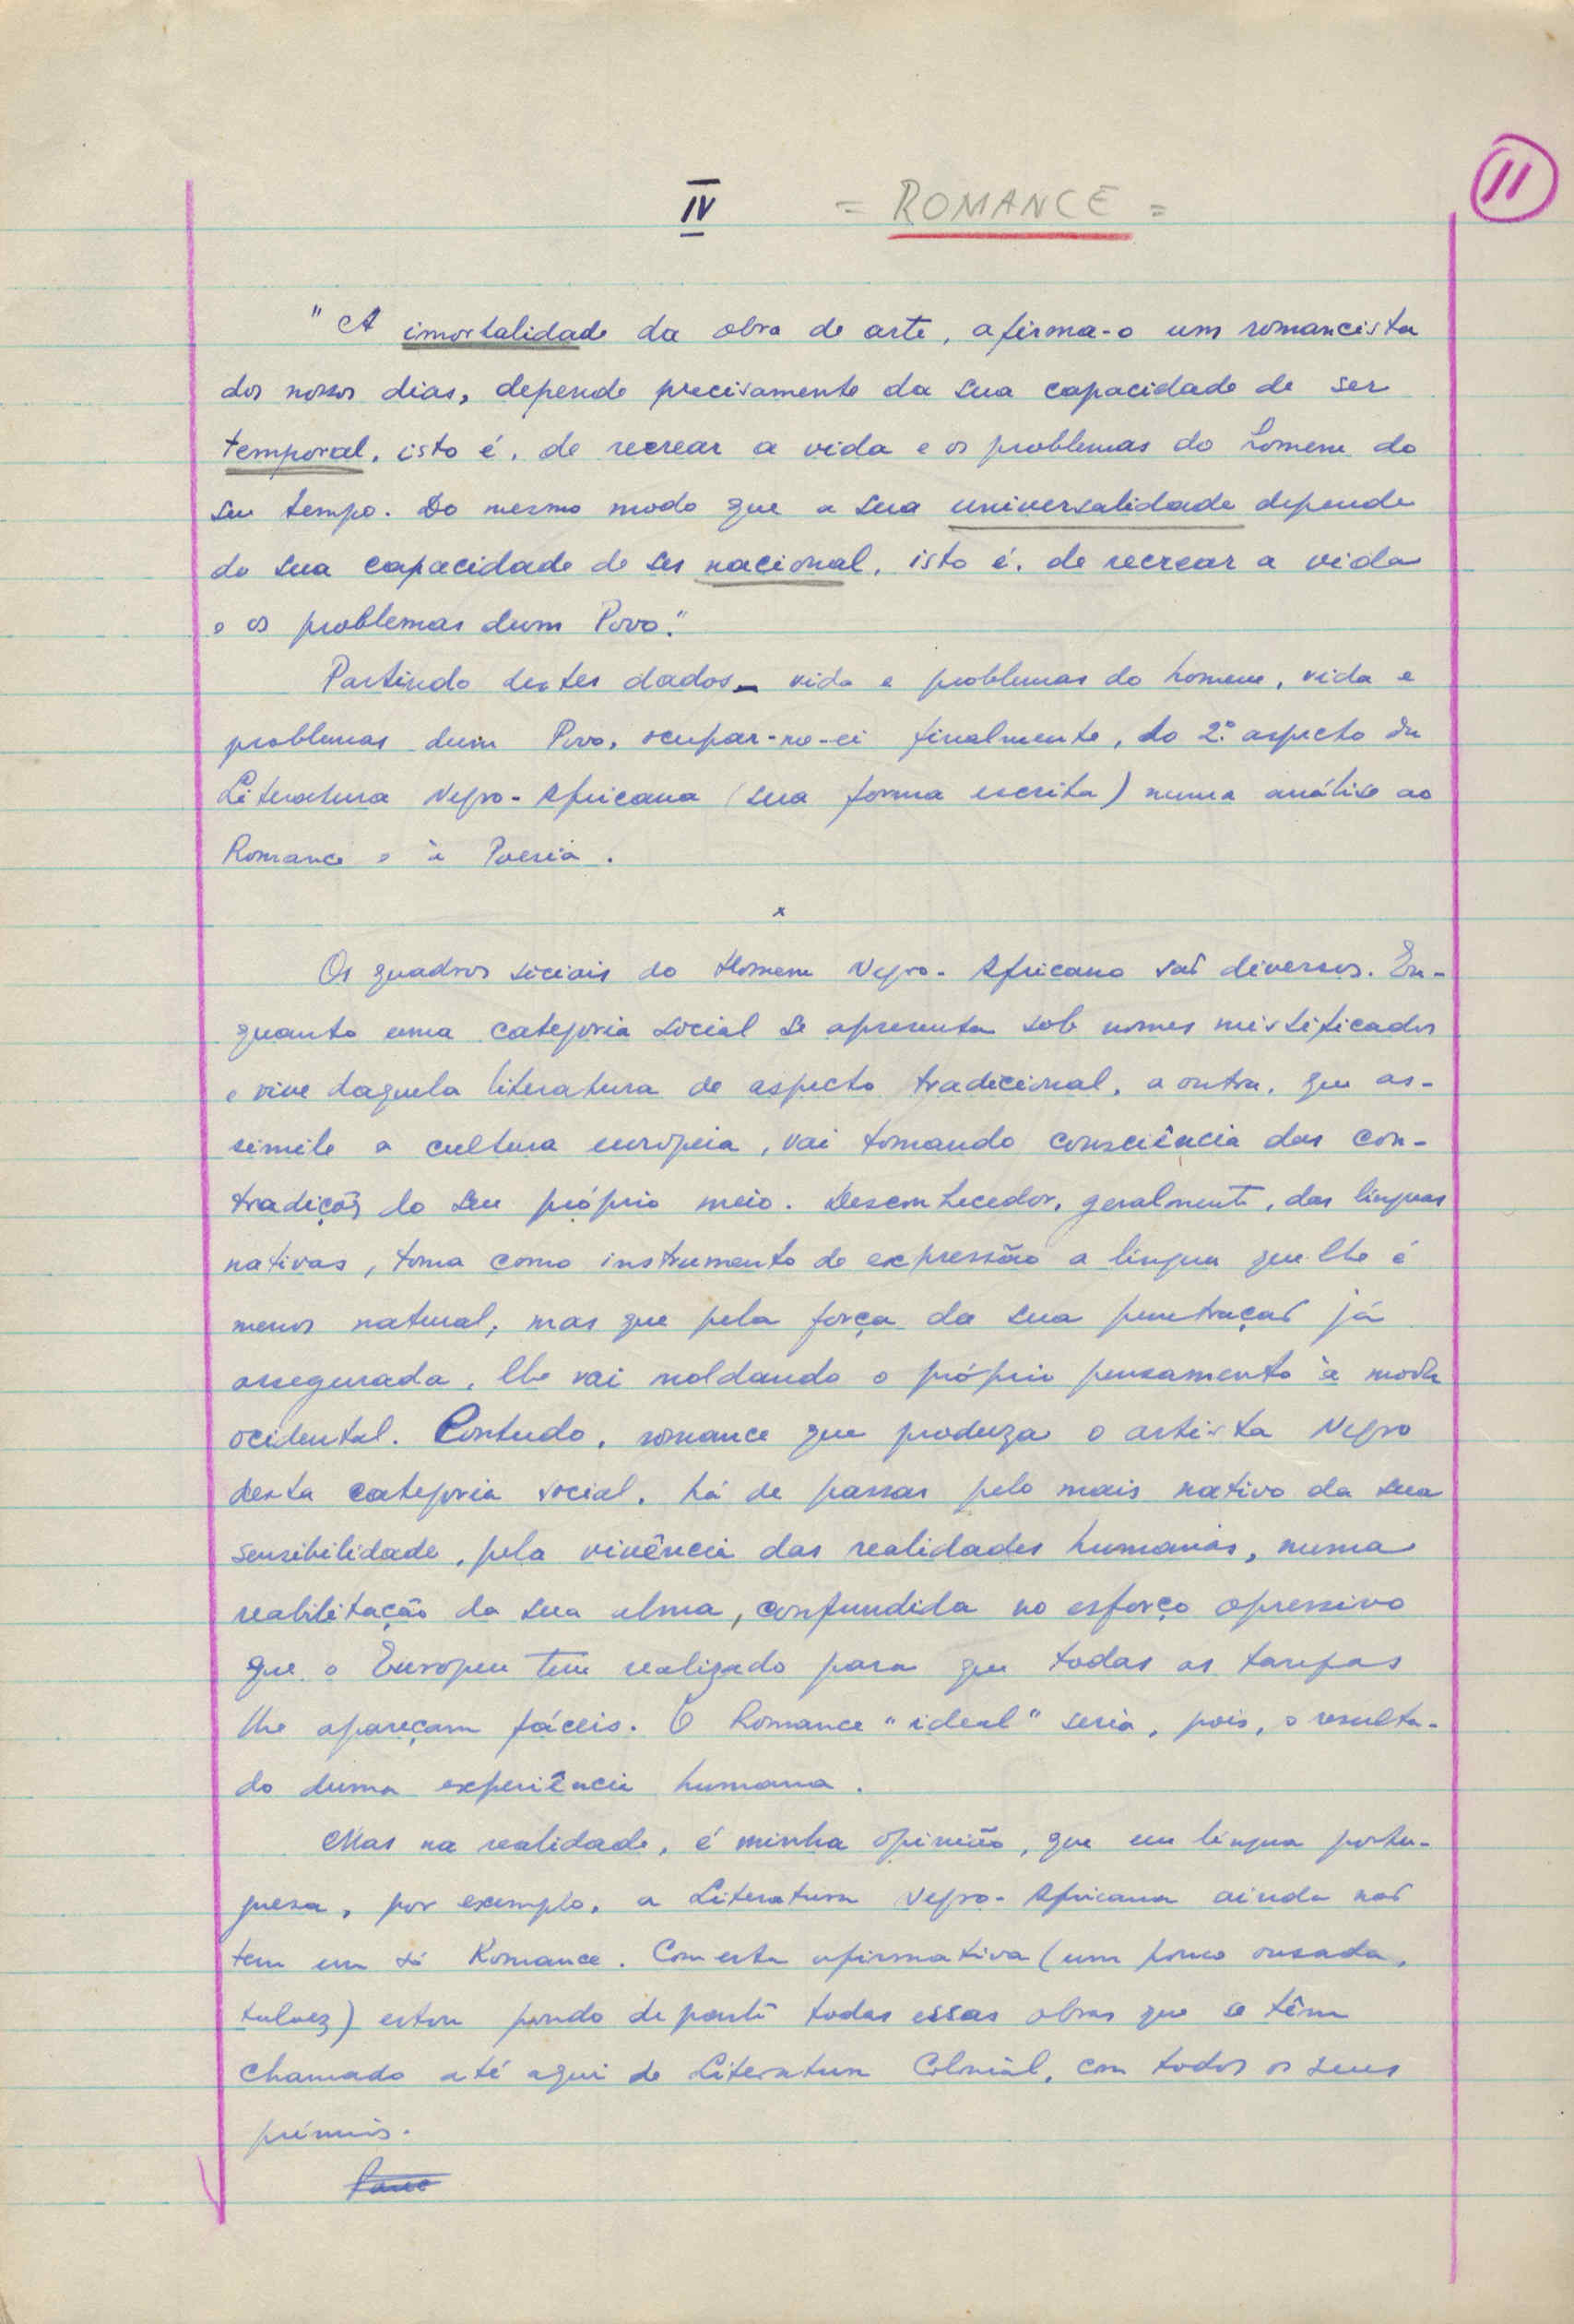 11
IV = ROMANCE =
"A imortalidade da obra de arte, afirma-o um romancista
dos nossos dias, depende precisamente da sua capacidade de ser
temporal, isto é, de recrear a vida e os problemas do homem do
seu tempo. Do mesmo modo que a sua universalidade depende
da sua capacidade de ser nacional, isto é, de recrear a vida
e os problemas dum Povo."
Partindo destes dados – vida e problemas do homem, vida e
problemas dum Povo, ocupar-me-ei finalmente, do 2.º aspecto da
Literatura Negro-Africana (sua forma escrita) numa análise ao
Romance e à Poesia.
x
Os quadros sociais do Homem Negro-Africano são diversos. En-
quanto uma categoria social se apresenta sob nomes mistificados
e vive daquela literatura de aspecto tradicional, a outra, que as-
simila a cultura europeia, vai tomando consciência das con-
tradições do seu próprio meio. Desconhecedor, geralmente, das línguas
nativas, toma como instrumento de expressão a língua que lhe é
menos natural, mas que pela força da sua penetração já
assegurada, lhe vai moldando o próprio pensamento à moda
ocidental. Contudo, romance que produza o artista Negro
desta categoria social, há de passar pelo mais nativo da sua
sensibilidade, pela vivência das realidades humanas, numa
reabilitação da sua alma, confundida no esforço opressivo
que o Europeu tem realizado para que todas as tarefas
lhe apareçam fáceis. O Romance "ideal" seria, pois, o resulta-
do duma experiência humana.
Mas na realidade, é minha opinião, que em língua portu-
guesa, por exemplo, a Literatura Negro-Africana ainda não
tem um só Romance. Com esta afirmativa (um pouco ousada,
talvez) estou pondo de parte todas essas obras que se têm
chamado até aqui de Literatura Colonial, com todos os seus
prémios.